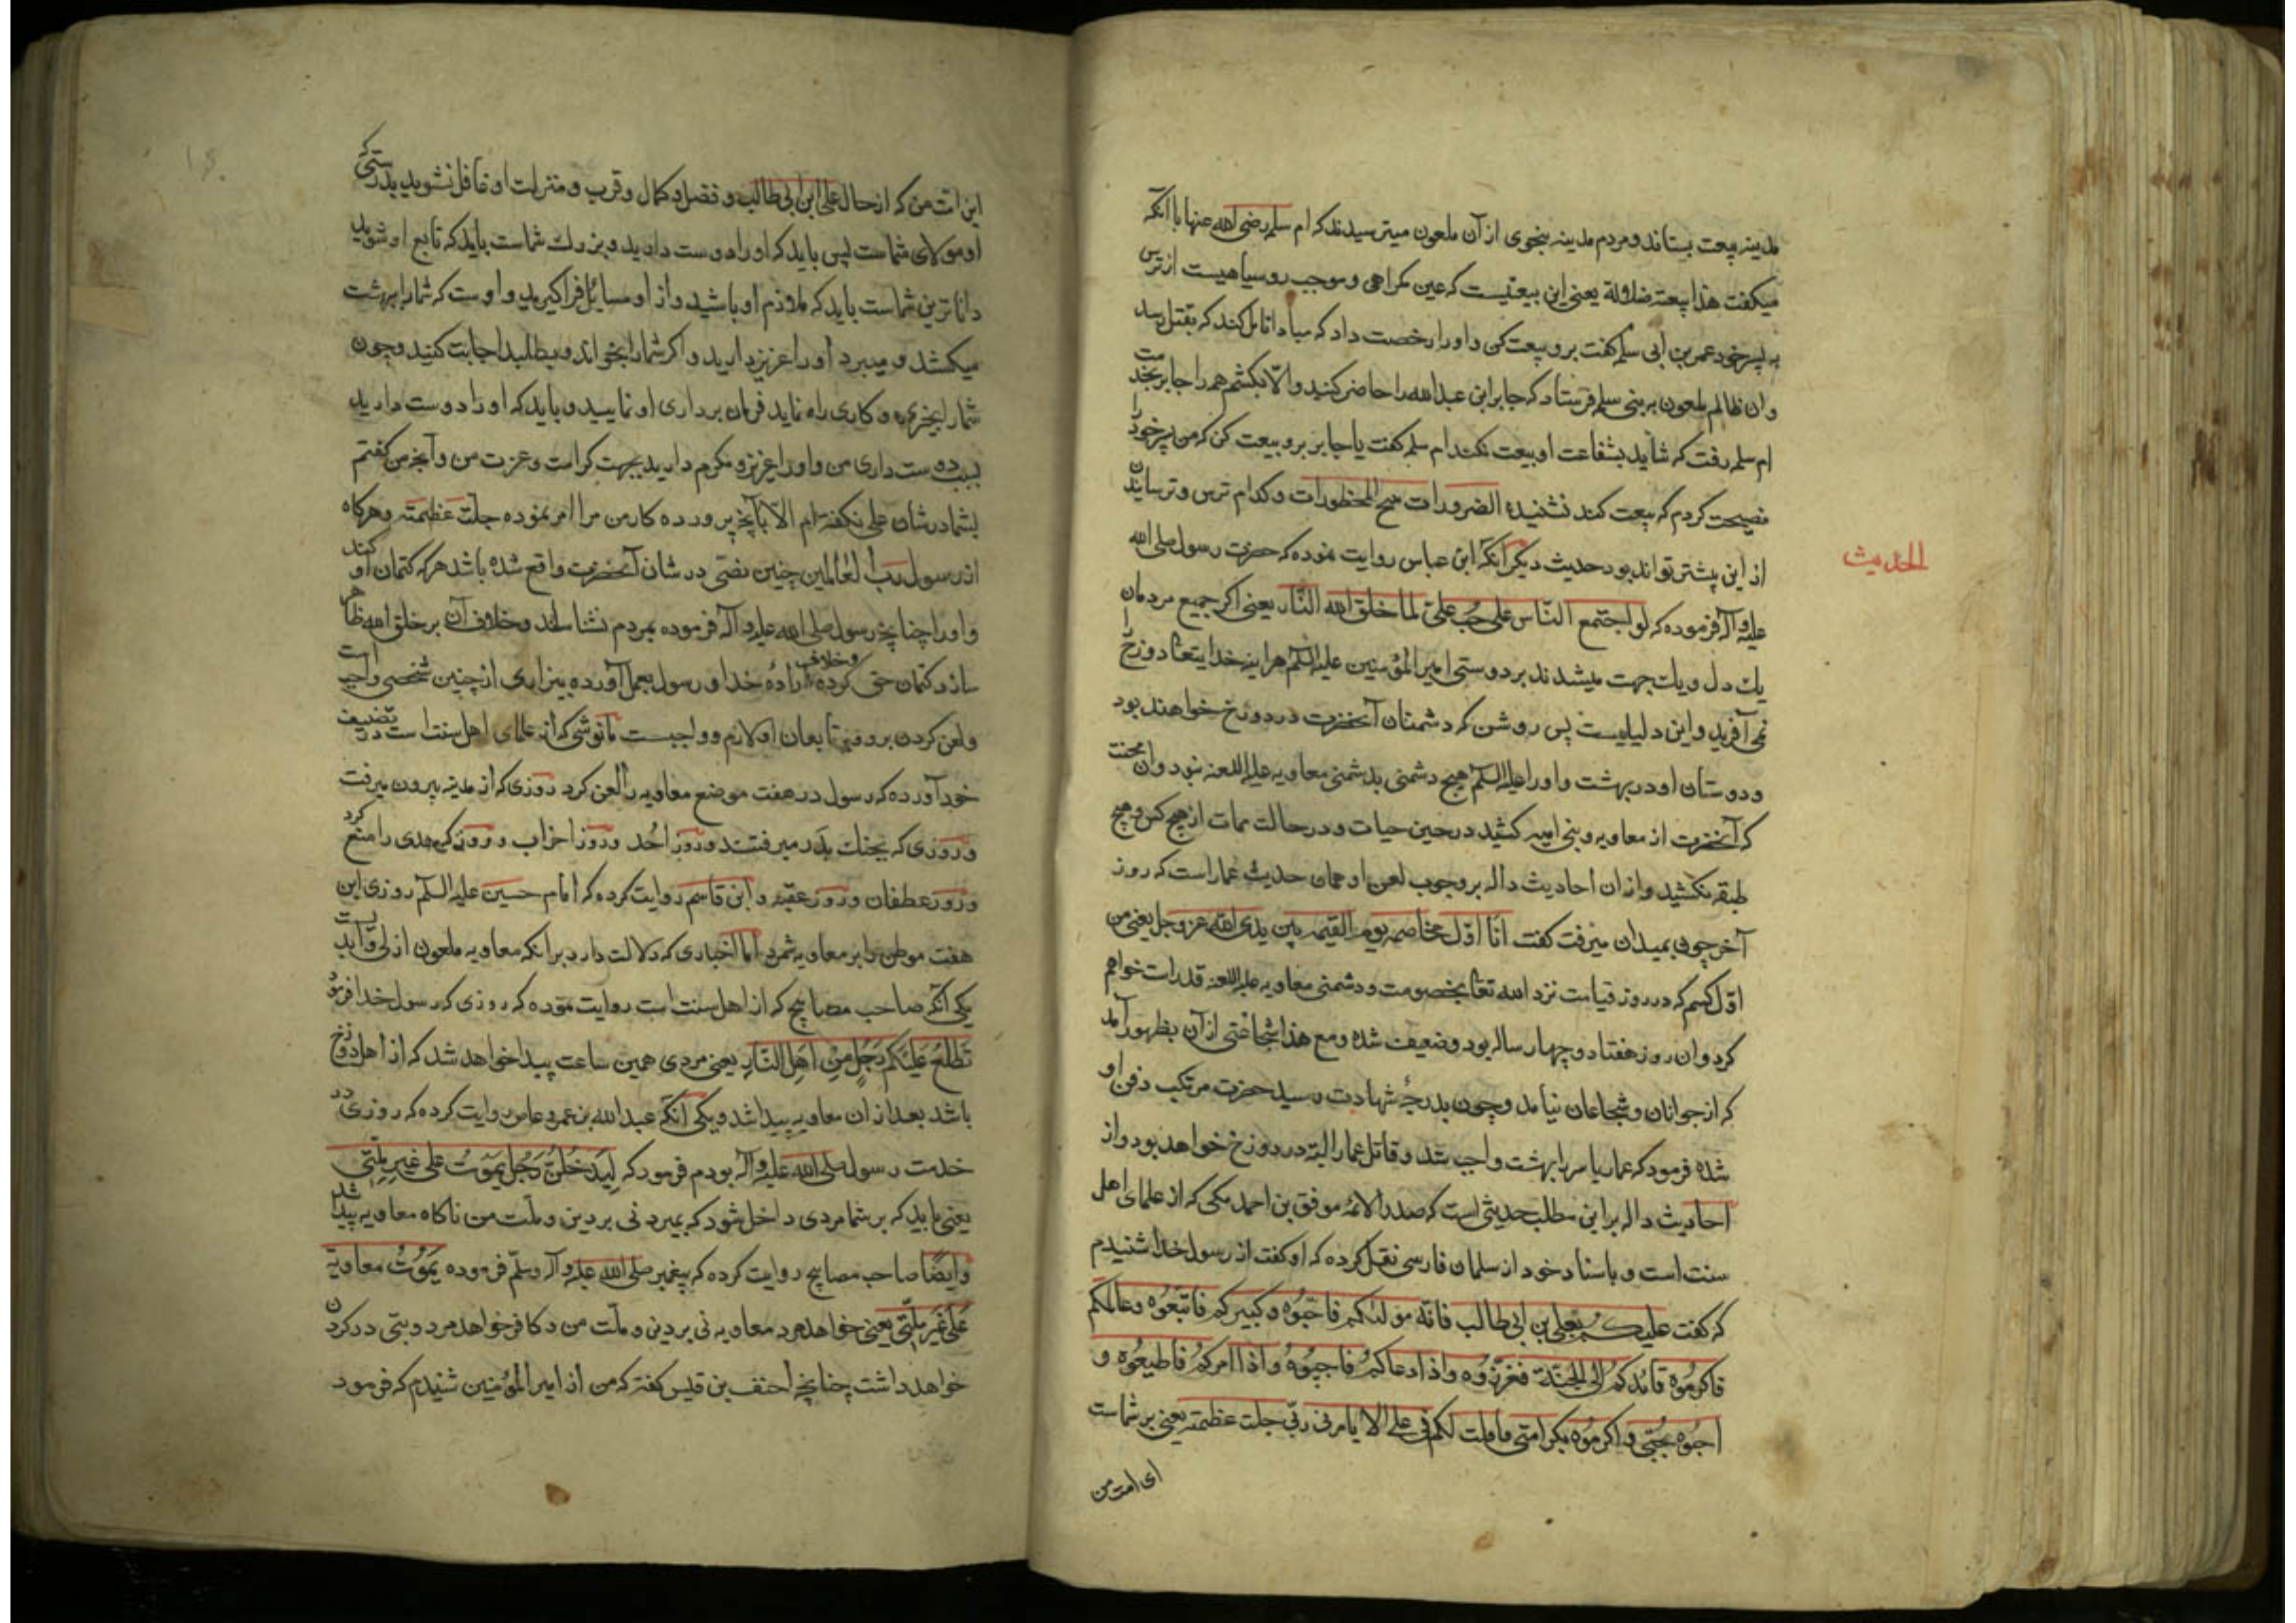 مدینه بیعت بستاند و مردم مدینه بنحوی از آن ملعون میترسیدند که ام سلمه رضی الله عنها با آنکه
میکفت هذا بیعته ضلالة یعنی این بیعتیست که عین کمراهی و موجب روسیاهیست از ترس
به پسر خود عمر بن ابی سلمه کفت برو بیعت کن و او را رخصت داد که مبادا تامل کند که بقتل رسد
وان ظالم ملعون بر بنی سلمه فرستاد که جابر ابن عبدالله را حاضر کنید والّا بکشم همه را جابر بخدمت
ام سلمه رفت که شاید بشفاعت او بیعت نکند ام سلمه کفت یا جابر برو بیعت کن که من پسر خود را
نصیحت کردم که بیعت کند نشنیدهٔ الضرورات تبیح المحظورات و کدام ترس و ترسانیدن
از این بیشتر تواند بود حدیث دیکر آنکه ابن عباس روایت نموده که حضرت رسول صلی الله
الحدیث
علیه وآله فرموده که لو اجتمع النّاس علی حب علیّ لما خلق الله النّار یعنی اکر جمیع مردمان
یك دل و یك جهت میشدند بر دوستی امیر المؤمنین علیه السلام هراینه خدایتعالی دوزخ را
نمی آفرید و این دلیلیست پس روشن که دشمنان آنحضرت در دوزخ خواهند بود
و دوستان او در بهشت و او را علیه السلام هیچ دشمنی بدشمنی معاویه علیه اللعنه نبود وان محنت
که آنحضرت از معاویه و بنی امیه کشید در حین حیات و در حالت ممات از هیچ کس و هیچ
طبقه نکشید و از ان احادیث داله بر وجوب لعن او همان حدیث عمار است که روز
آخر چون بمیدان میرفت کفت انا اوّل مخاصمه یوم القیمه بین یدی الله عز وجل یعنی من
اوّل کسم که در روز قیامت نزد الله تعالی بخصومت و دشمنی معاویه علیه اللعنه قد راست خواهم
کرد وان روز هفتاد و چهار ساله بود و ضعیف شده و مع هذا شجاعتی از آن بظهور آمد
که از جوانان و شجاعان نیامد و چون بدرجهٔ شهادت رسید حضرت مرتکب دفن او
شده فرمود که عمار یاسر را بهشت واجب شد و قاتل عمار البته در دوزخ خواهد بود و از
احادیث داله بر این مطلب حدیثی است که صدر الائمه موفق بن احمد مکی که از علمای اهل
سنت است و باسناد خود از سلمان فارسی نقل کرده که او کفت از رسول خدا شنیدم
که کفت علیکم بعلی بن ابی طالب فانّه مولیٰکم فاحبّوه و کبیرکم فاتبعوه و عالمکم
فاکرموه قائدکم الی الجنّة فعززوه واذا دعاکم فاجیبوه واذا امرکم فاطیعوه و
احبوه بحبّی و اکرموه بکرامتی ما قلت لکم فی علی الا ما یامرنی ربّی جلت عظمته یعنی بر شماست
ای امت من
این امّت من که از حال علی ابن ابی طالب و فضل و کمال و قرب و منزلت او غافل نشوید بدرستی که
او مولای شماست پس باید که او را دوست دارید و بزرك شماست باید که تابع او شوید
داناترین شماست باید که ملازم او باشید و از او مسائل فراکیرید و اوست که شما را ببهشت
میکشد و میبرد او را عزیز دارید و اکر شما را بخواند و بطلبد اجابت کنید و چون
شما را بخیری و کاری راه نماید فرمان برداری او نمایید و باید که او را دوست دارید
بسبب دوست داری من و او را عزیز و مکرم دارید بجهت کرامت و عزت من و آنچه من کفتم
بشما در شان علی نکفته ام الّا بآنچه پروردهکار من مرا امر نموده جلّت عظمته و هرکاه
از رسول رب العالمین چنین نصّی در شان آنحضرت واقع شده باشد هر که کتمان او کند
و او را چنانچه رسول صلی الله علیه وآله فرموده بمردم نشناساند و خلاف آن بر خلق الله ظاهر
سازد کتمان حق کرده و خلاف ارادهٔ خدا و رسول بعمل آورده بیزاری از چنین شخصی واجب است
ولعن کردن بر وی و تابعان او لازم و واجبست مانوشی که از علمای اهل سنت است در تصنیف
خود آورده که رسول در هفت موضع معاویه را لعن کرد روزی که از مدینه بیرون میرفت
و روزی که بجنك بدر میرفتند و روز اُحد و روز احزاب و روزی که هدی را منع کرد
و روز عطفان و روز عقبه و ابن قاسم روایت کرده که امام حسین علیه السلام روزی این
هفت موطن را بر معاویه شمرد اما اخباری که دلالت دارد بر انکه معاویه ملعون ازلی و ابدیست
یکی آنکه صاحب مصابیح که از اهل سنت است روایت نموده که روزی که رسول خدا فرمود
تطلع علیکم رجل من اهل النّار یعنی مردی همین ساعت پیدا خواهد شد که از اهل دوزخ
باشد بعد از ان معاویه پیدا شد و یکی آنکه عبدالله بن عمرو عاص روایت کرده که روزی در
خدمت رسول صلی الله علیه وآله بودم فرمود که لیدخلنّ رجل یموت علی غیر ملّتی
یعنی باید که بر شما مردی داخل شود که بمیرد نی بر دین و ملت من ناکاه معاویه پیدا شد
وایضًا صاحب مصابیح روایت کرده که پیغمبر صلی الله علیه وآله وسلّم فرموده یموت معاویة
علی غیر ملّتی یعنی خواهد مرد معاویه نی بر دین و ملّت من و کافر خواهد مرد و بتی در کردن
خواهد داشت چنانچه احنف بن قیس کفته که من از امیر المؤمنین شنیدم که فرمود